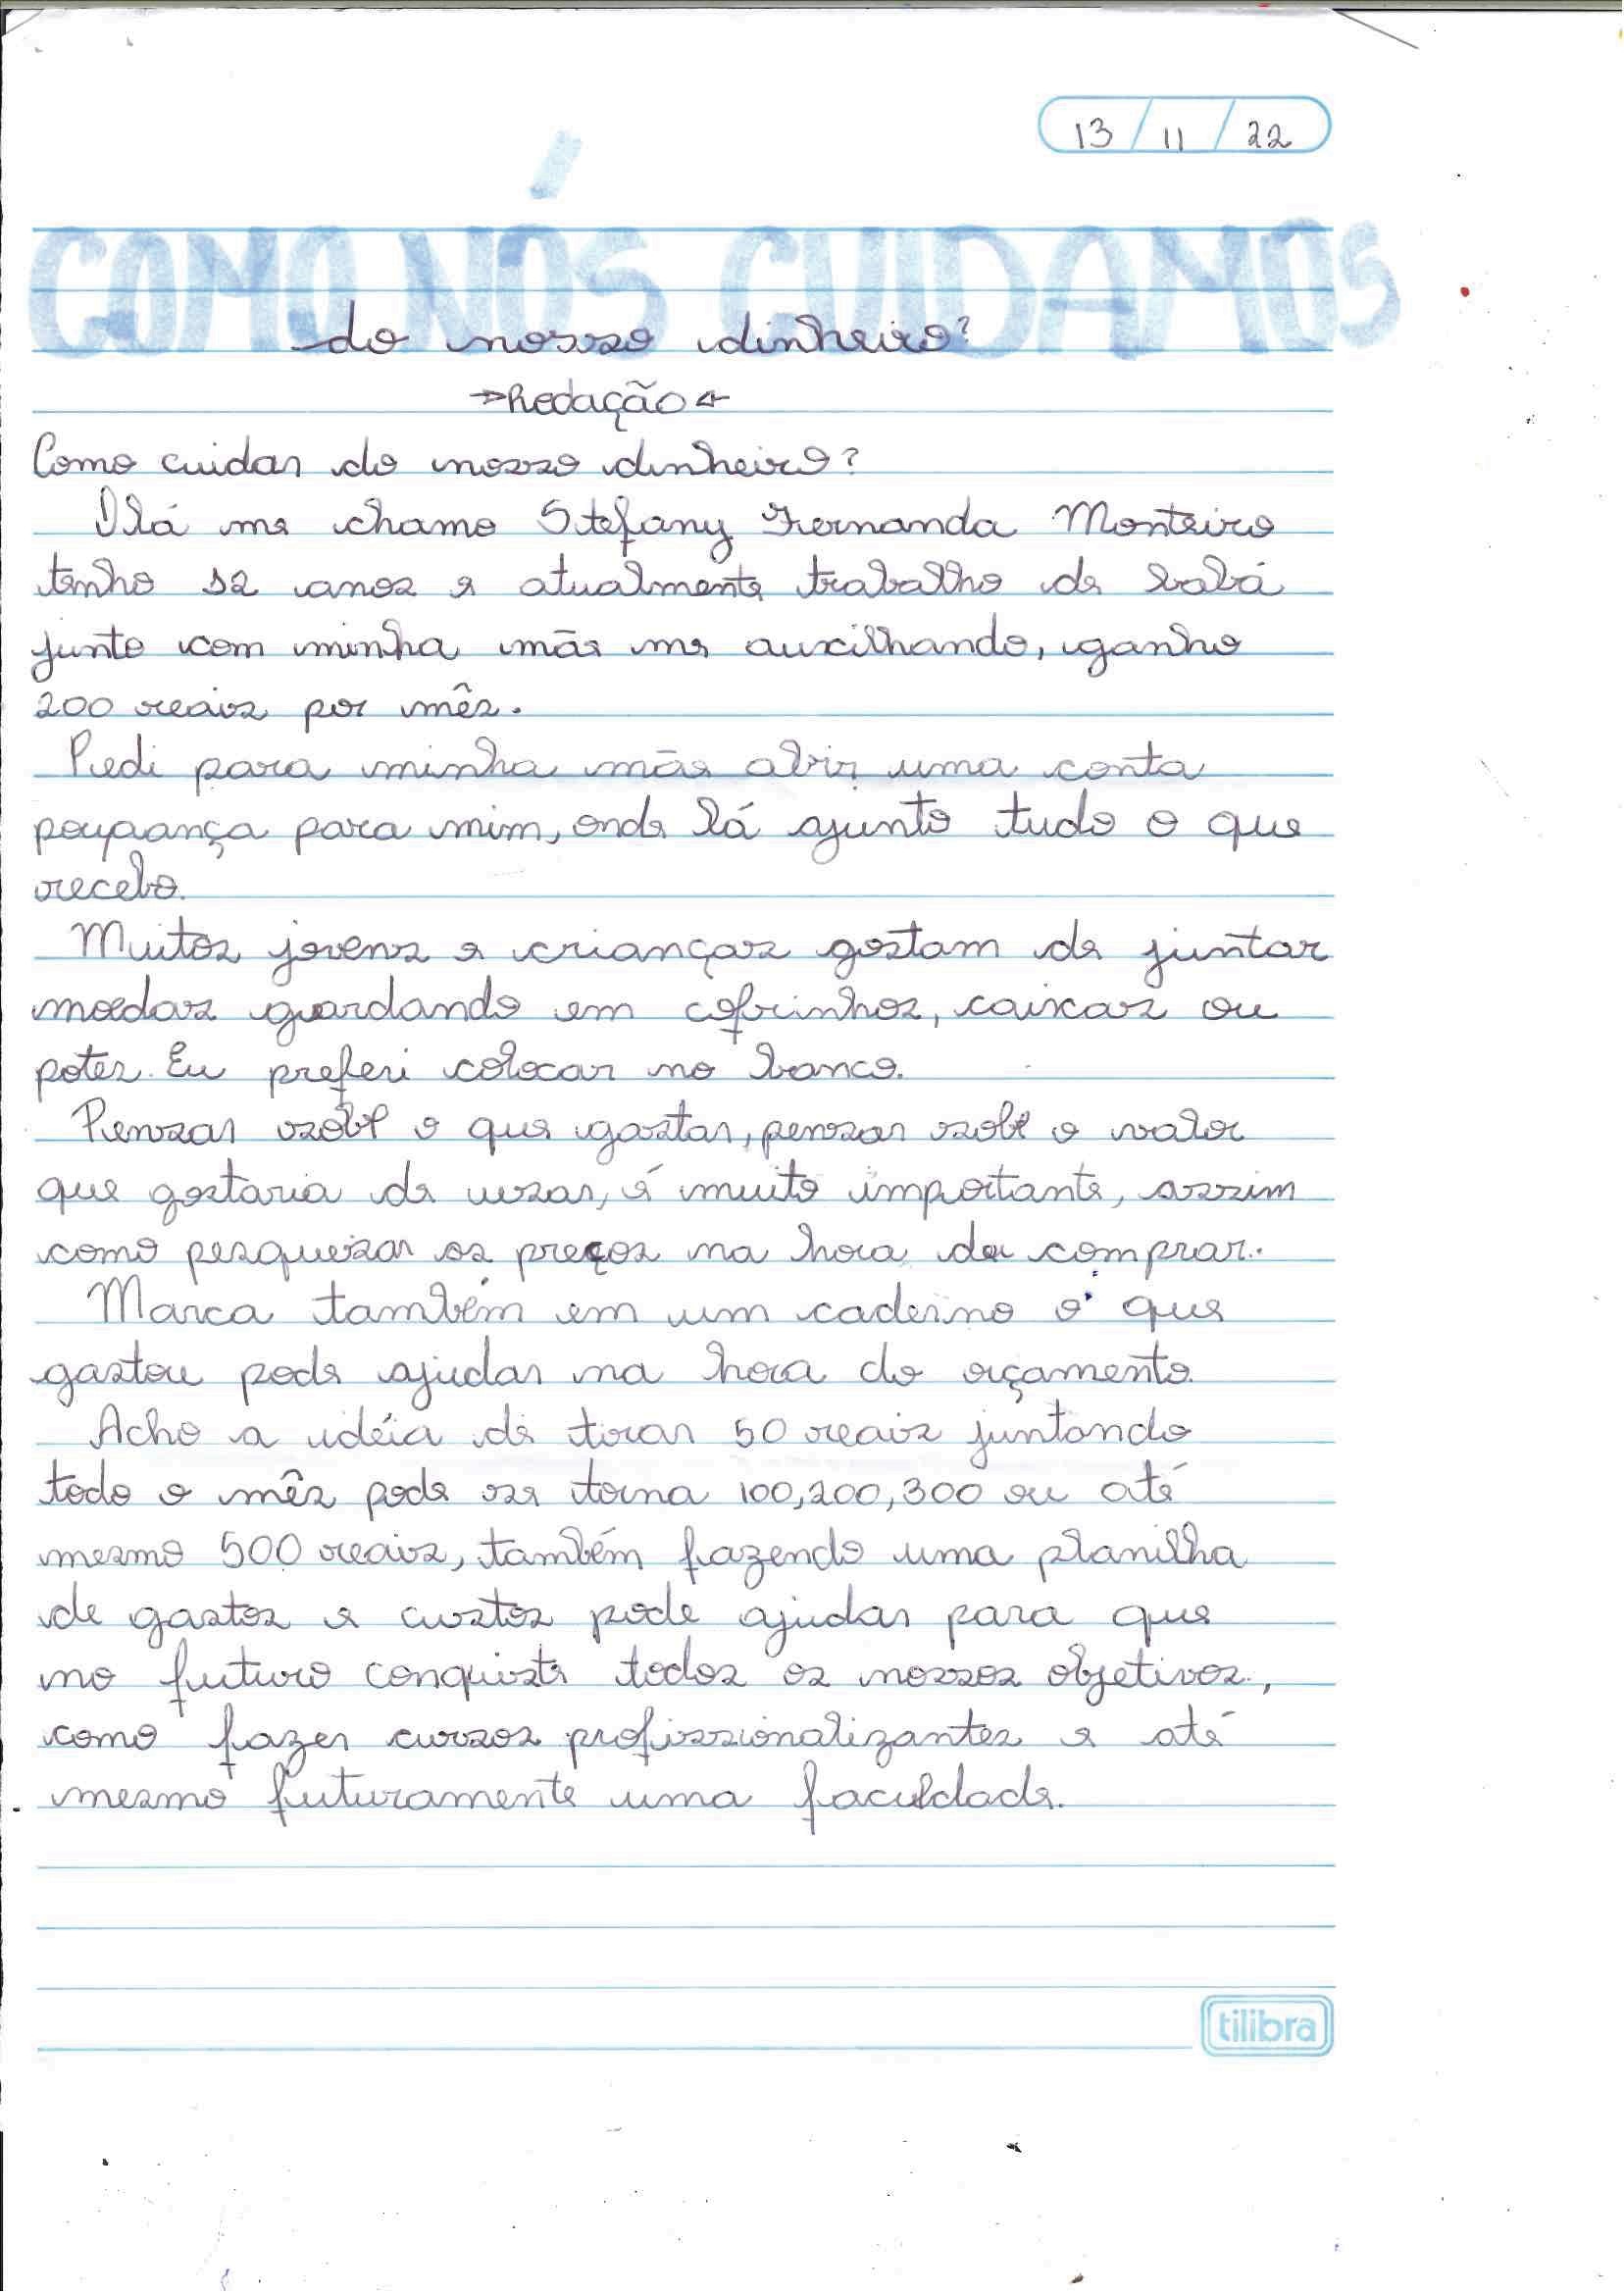 13/11/22
COMO NÓS CUIDAMOS
do nosso dinheiro?
→Redação←
Como cuidar do nosso dinheiro?
Olá me chamo Stefany Fernanda Monteiro
tenho 12 anos e atualmente trabalho de babá
junto com minha mãe me auxilhando, ganho
200 reais por mês.
Pedi para minha mãe abrir uma conta
poupança para mim, onde lá ajunto tudo o que
recebo.
Muitos jovens e crianças gostam de juntar
moedas guardando em cofrinhos, caixas ou
potes. Eu preferi colocar no banco.
Pensar sobre o que gastar, pensar sobre o valor
que gostaria de usar, é muito importante, assim
como pesqueisar os preços na hora de comprar.
Marca também em um caderno o que
gastou pode ajudar na hora do orçamento.
Acho a idéia de tirar 50 reais juntando
todo o mês pode se torna 100,200,300 ou até
mesmo 500 reais, também fazendo uma planilha
de gastos e custos pode ajudar para que
no futuro conquiste todos os nossos objetivos,
como fazer cursos profissionalizantes e até
mesmo futuramente uma faculdade.
tilibra